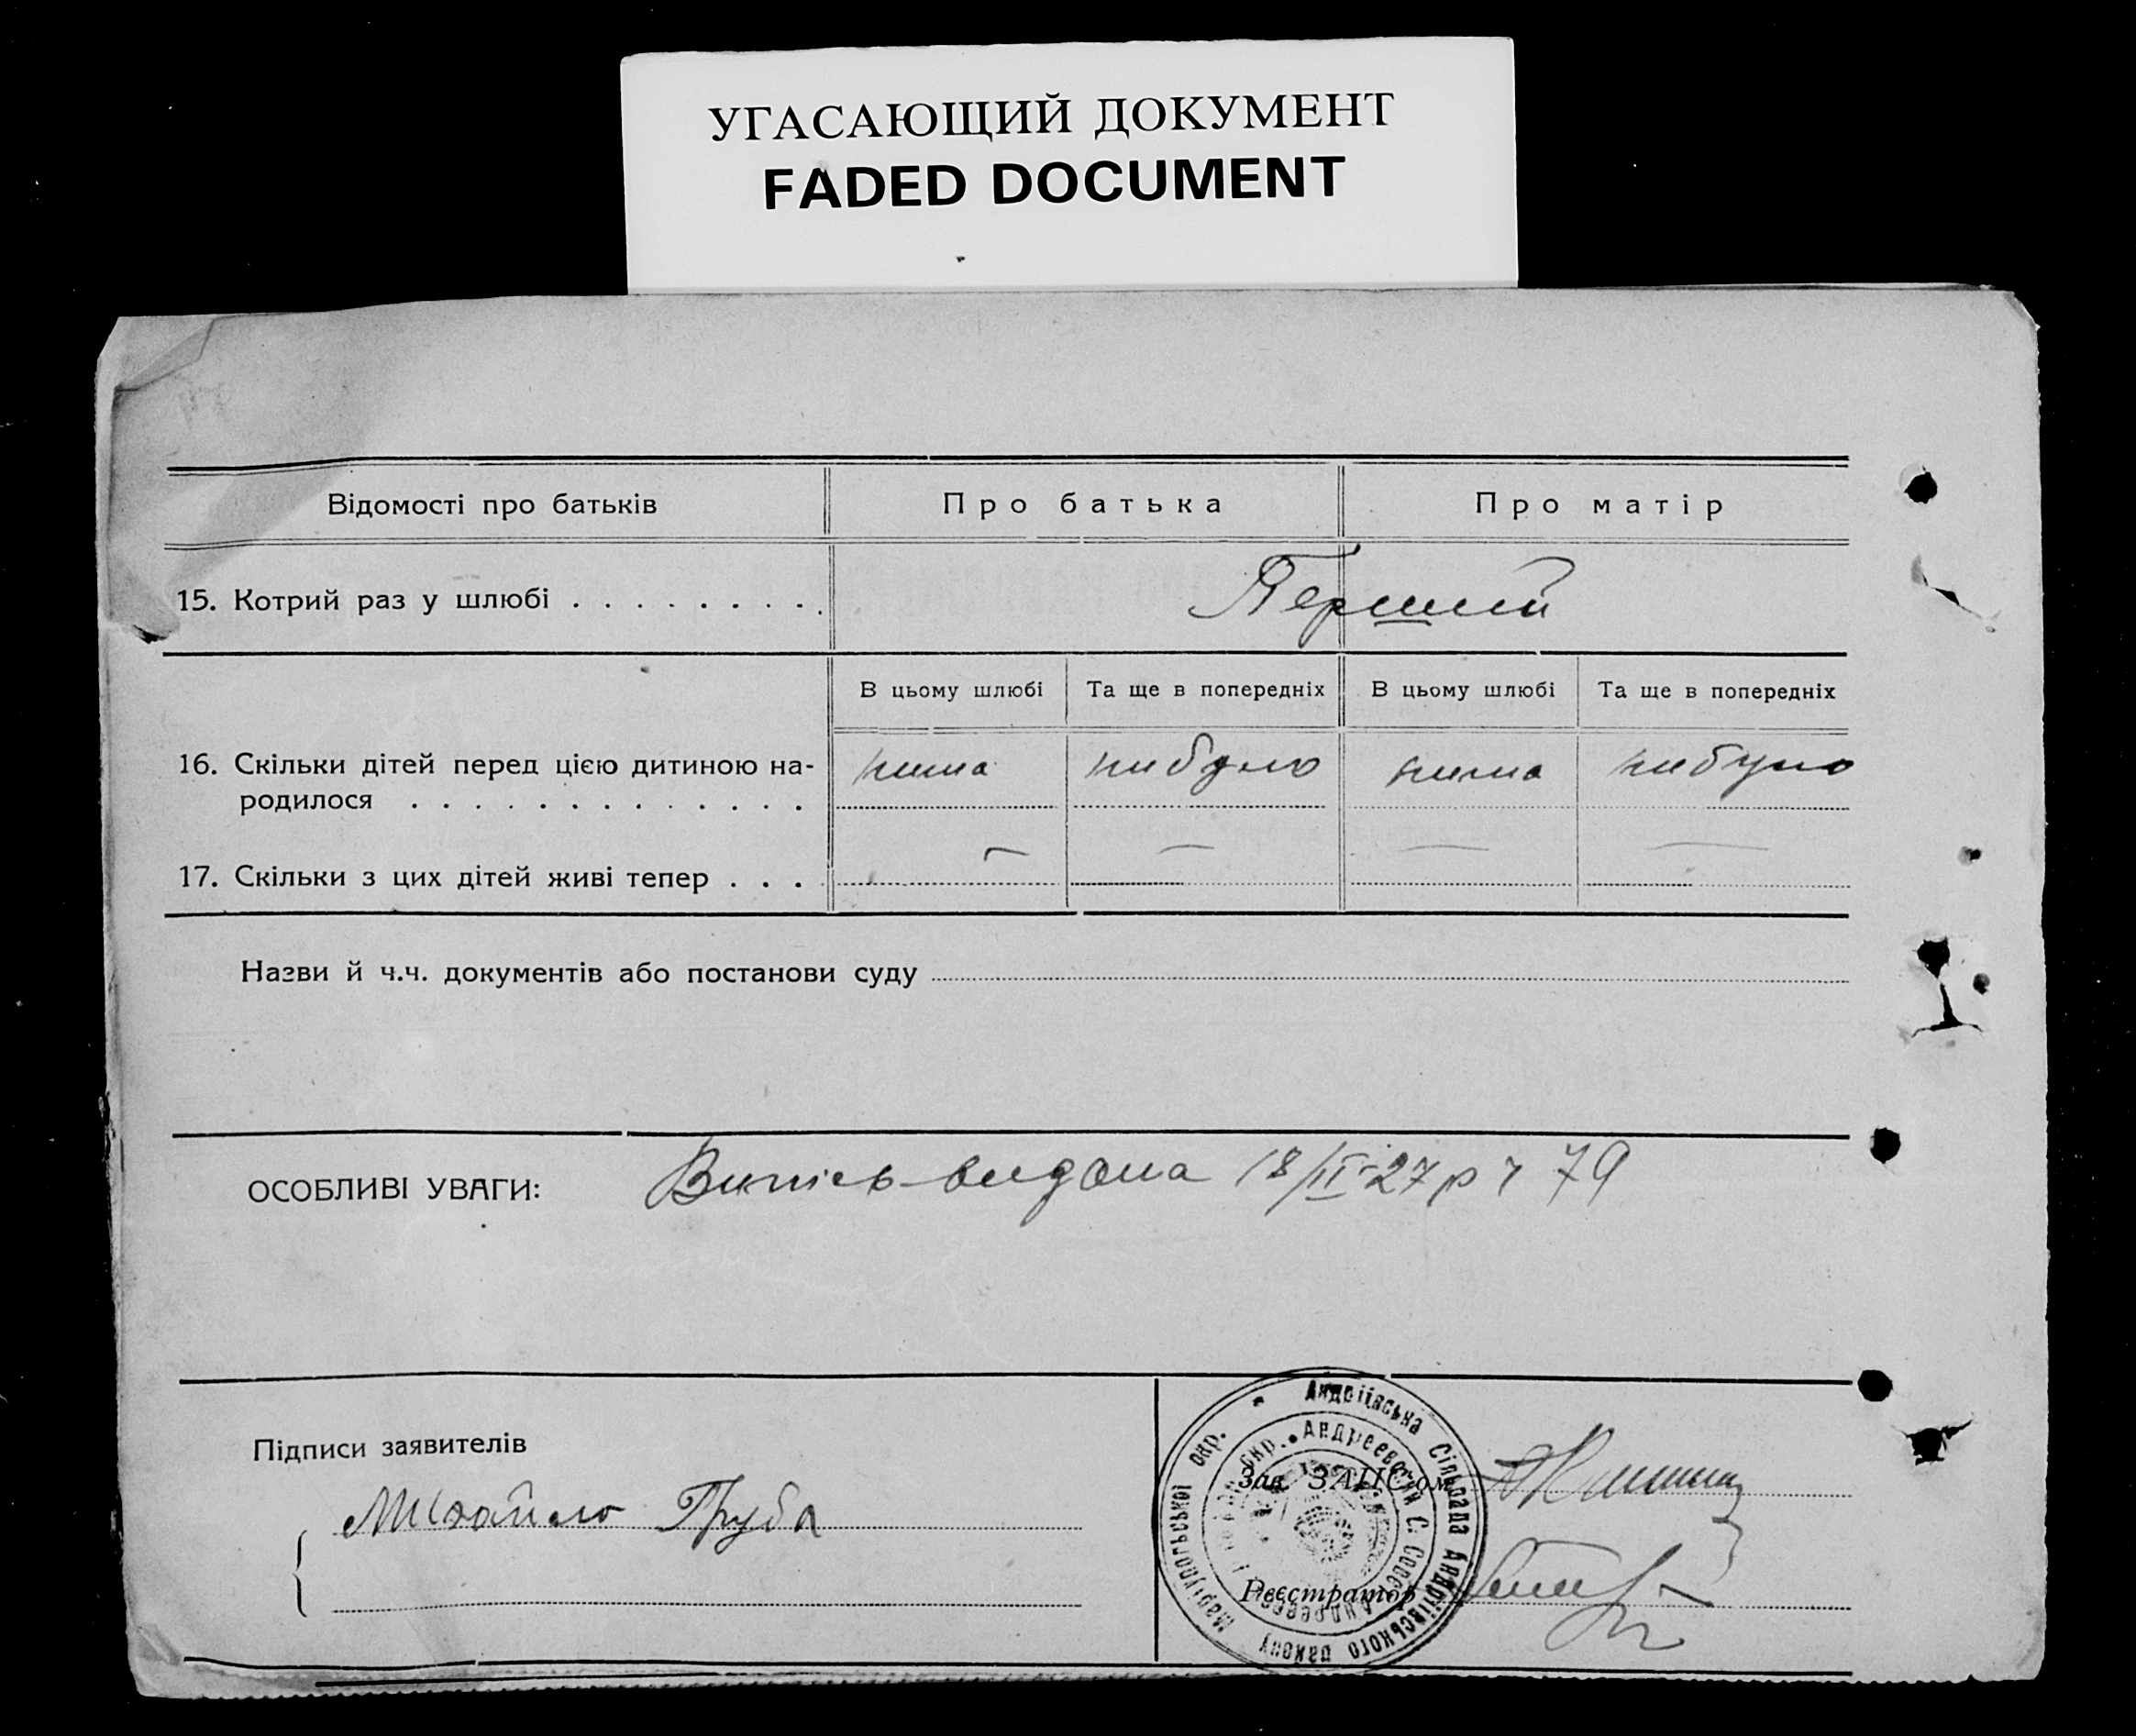 УГАСАЮЩИЙ ДОКУМЕНТ
FADED DOCUMENT
Відомості про батьків
Про батька
Про матір
15. Котрий раз у шлюбі . . . . . . . . .
Перший
В цьому шлюбі
Та ще в попередніх
В цьому шлюбі
Та ще в попередніх
16. Скільки дітей перед цією дитиною на-
родилося . . . . . . . . . . . . .
нима
нибуло
нима
нибуло
17. Скільки з цих дітей живі тепер . . .
— — — —
Назви й ч.ч. документів або постанови суду
ОСОБЛИВІ УВАГИ:
Випісь видана 18/II-27 р ч 79
Підписи заявителів
Михайло Груба
Зав. ЗАГС'ом
Реєстратор
Андріївська Сільрада Андріївського району Маріупольської окр.